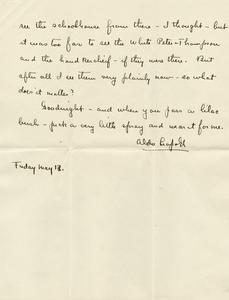 see the schoolhouse from there - I thought - but
it was too far to see the White Peter-Thompson
and the handkerchief - if they were there. But
after all I see them very plainly now - so what
does it matter?
Goodnight - and when you pass a lilac
bush - pick a very little spray and wear it for me.
Aldo Leopold
Friday May 13.